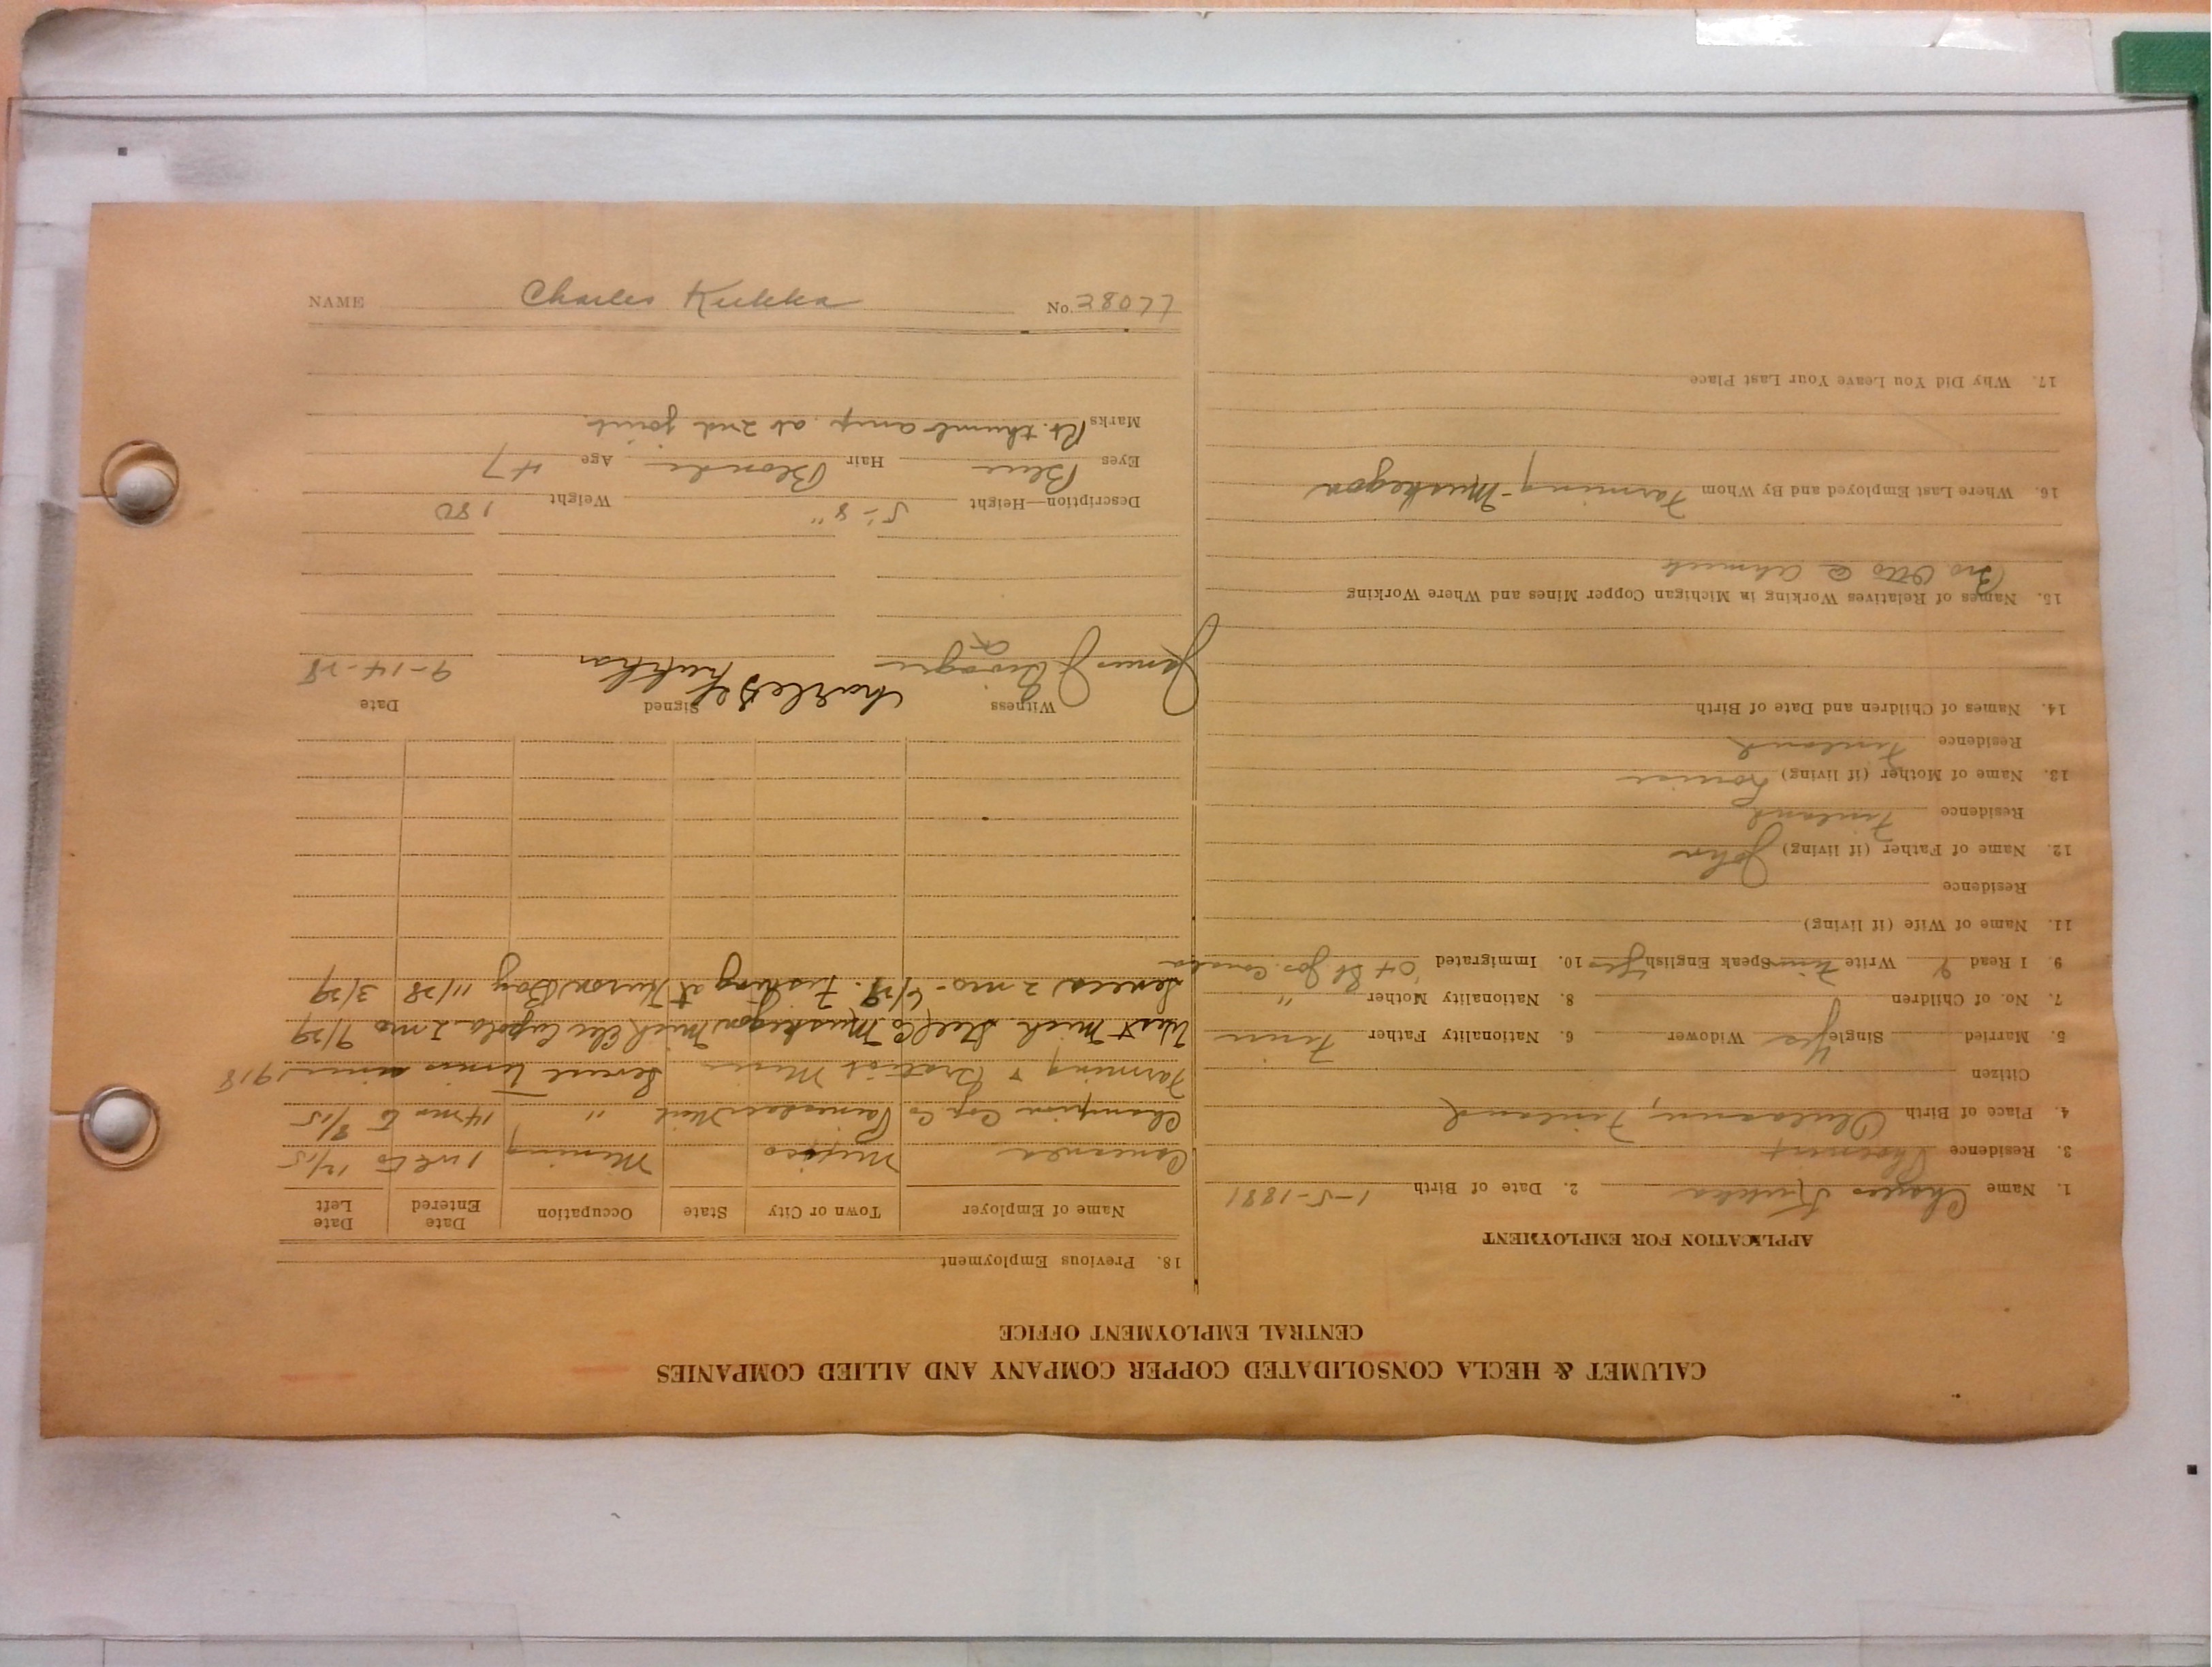 CALUMET & HECLA CONSOLIDATED COPPER COMPANY AND ALLIED COMPANIES
CENTRAL EMPLOYMENT OFFICE
APPLICATION FOR EMPLOYMENT
1. Name Charles Kukka 2. Date of Birth 1-5-1881
3. Residence Phoenix
4. Place of Birth Finland
Citizen
5. Married Single Yes Widower 6. Nationality Father Finn
7. No. of Children 8. Nationality Mother "
9. I Read Write Finn Speak English Yes 10. Immigrated 04 St Jos. Canada
11. Name of Wife (if living)
Residence
12. Name of Father (if living) John
Residence Finland
13. Name of Mother (if living) Louise
Residence Finland
14. Names of Children and Date of Birth
15. Names of Relatives Working in Michigan Copper Mines and Where Working
Bro Otto @ Ahmeek
16. Where Last Employed and By Whom Farming - Muskegon
17. Why Did You Leave Your Last Place
18. Previous Employment
Name of Employer Town or City State Occupation Date Entered Date Left
Cananea Mexico Mining 1 wk to 12/15
Champion Cop Co Painesdale Mich " 14 mo to 8/15
Farming & Gratiot Mine Several times since 1918
West Mich Steel Co Muskegon Mich Elec Cupola 2 mo 9/29
Seneca 2 mo - 6/29. Fishing at Huron Bay 11/28 3/29
Witness Signed Date
James J Charles Kukka 9-14-28
Description—Height 5'-8" Weight 180
Eyes Blue Hair Blonde Age 47
Marks Rt. thumb amp. at 2nd joint.
NAME Charles Kukka No. 23077